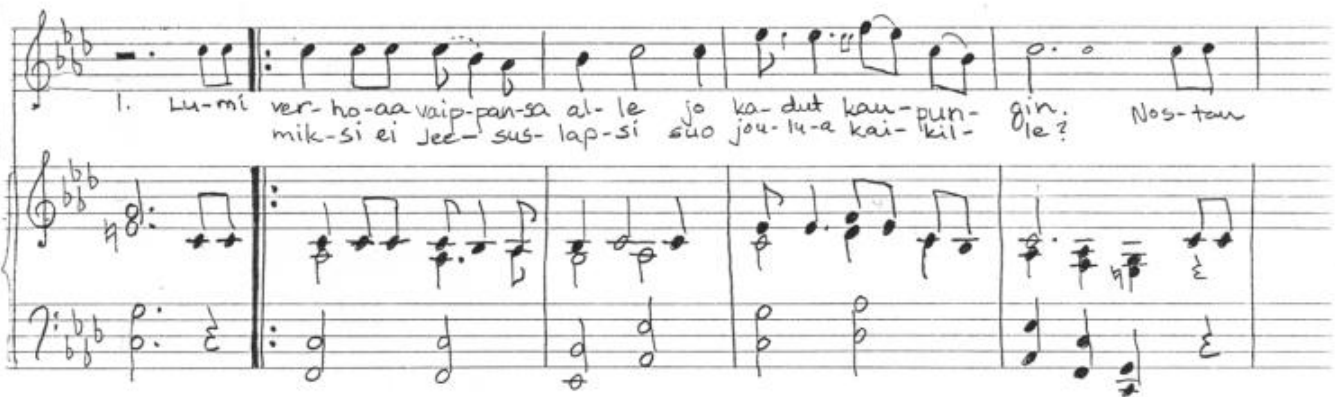 1. Lu-mi ver-ho-aa vaip-pan-sa al-le jo ka-dut kau-pun-gin. Nos-tan
mik-si ei Jee-sus-lap-si suo jou-lu-a kai-kil-le?